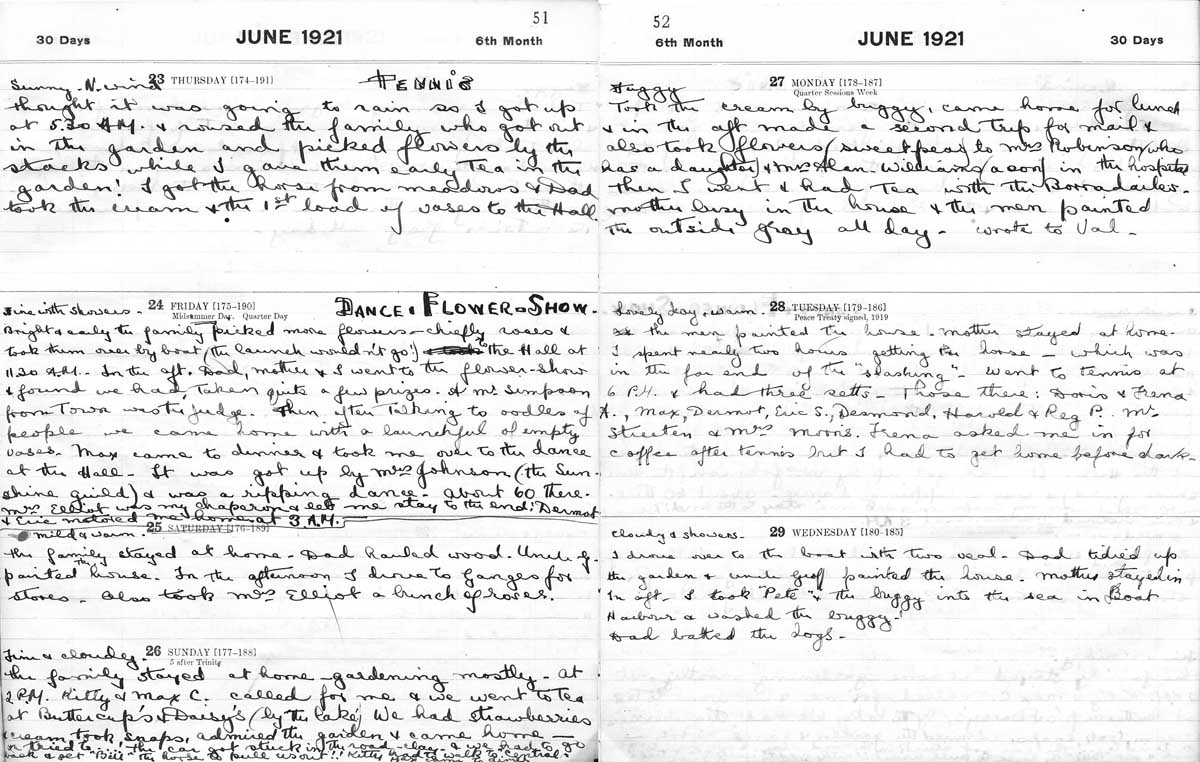 51
30 Days JUNE 1921 6th Month
Sunny. N. wind 23 THURSDAY [174-191] TENNIS
thought it was going to rain so I got up
at 5.30 A.M. & roused the family who got out
in the garden and picked flowers by the
stacks while I gave them early tea in the
garden! I got the horse from meadows & Dad
took the cream & the 1st load of vases to the Hall.
24 FRIDAY [175-190] DANCE & FLOWER-SHOW.
Fine with showers. Midsummer Day. Quarter Day
Bright & early the family picked more flowers - chiefly roses &
took them over by boat (the launch wouldn't go!) to the Hall at
11.30 A.M. In the aft. Dad, mother & I went to the flower-show
& found we had taken quite a few prizes. A Mr Simpson
from Town was the judge. Then after talking to oodles of
people we came home with a launchful of empty
vases. Max came to dinner & took me over to the dance
at the Hall. It was got up by Mrs Johnson (the Sun-
shine guild) & was a ripping dance - about 60 there.
Mrs Elliot was my chaperon & let me stay to the end! Dermot
& Eric motored me home at 3 A.M.
25 SATURDAY [176-189]
mild & warm.
The family stayed at home. Dad hauled wood. Unc. G.
painted the house. In the afternoon I drove to Ganges for
stores. Also took Mrs Elliot a bunch of roses.
Fine & cloudy. 26 SUNDAY [177-188]
5 after Trinity
The family stayed at home - gardening mostly. At
2 P.M. Kitty & Max C. called for me & we went to tea
at Buttercup's & Daisy's (by the lake) We had strawberries
cream, took snaps, admired the garden & came home -
or tried to!! The car got stuck in the road - clay & we had to go
the horse to pull us out!! Kitty had to walk to Central.
52
6th Month JUNE 1921 30 Days
27 MONDAY [178-187]
Quarter Sessions Week
Took the cream by buggy, came home for lunch
& in the aft made a second trip for mail &
also took flowers (sweetpeas) to Mrs Robinson (who
has a daughter) & Mrs Alan Williams (a son) in the hospital
Then I went & had tea with the Borradailes.
Mother busy in the house & the men painted
the outside gray all day - wrote to Val -
Lovely day, warm. 28 TUESDAY [179-186]
Peace Treaty signed, 1919
the men painted the house. Mother stayed at home.
I spent nearly two hours getting the horse - which was
in the far end of the "slashing". Went to tennis at
6 P.M. & had three setts. Those there: Doris & Frena
A., Max, Dermot, Eric S., Desmond, Harold & Reg P. Mr
Streeten & Mrs Morris. Frena asked me in for
coffee after tennis but I had to get home before dark.
Cloudy & showers. 29 WEDNESDAY [180-185]
I drove over to the boat with two veal. Dad tidied up
the garden & uncle Geoff painted the house. Mother stayed in
In aft. I took "Pete" & the buggy into the sea in Boat
Harbour & washed the buggy!
Dad bathed the dogs.